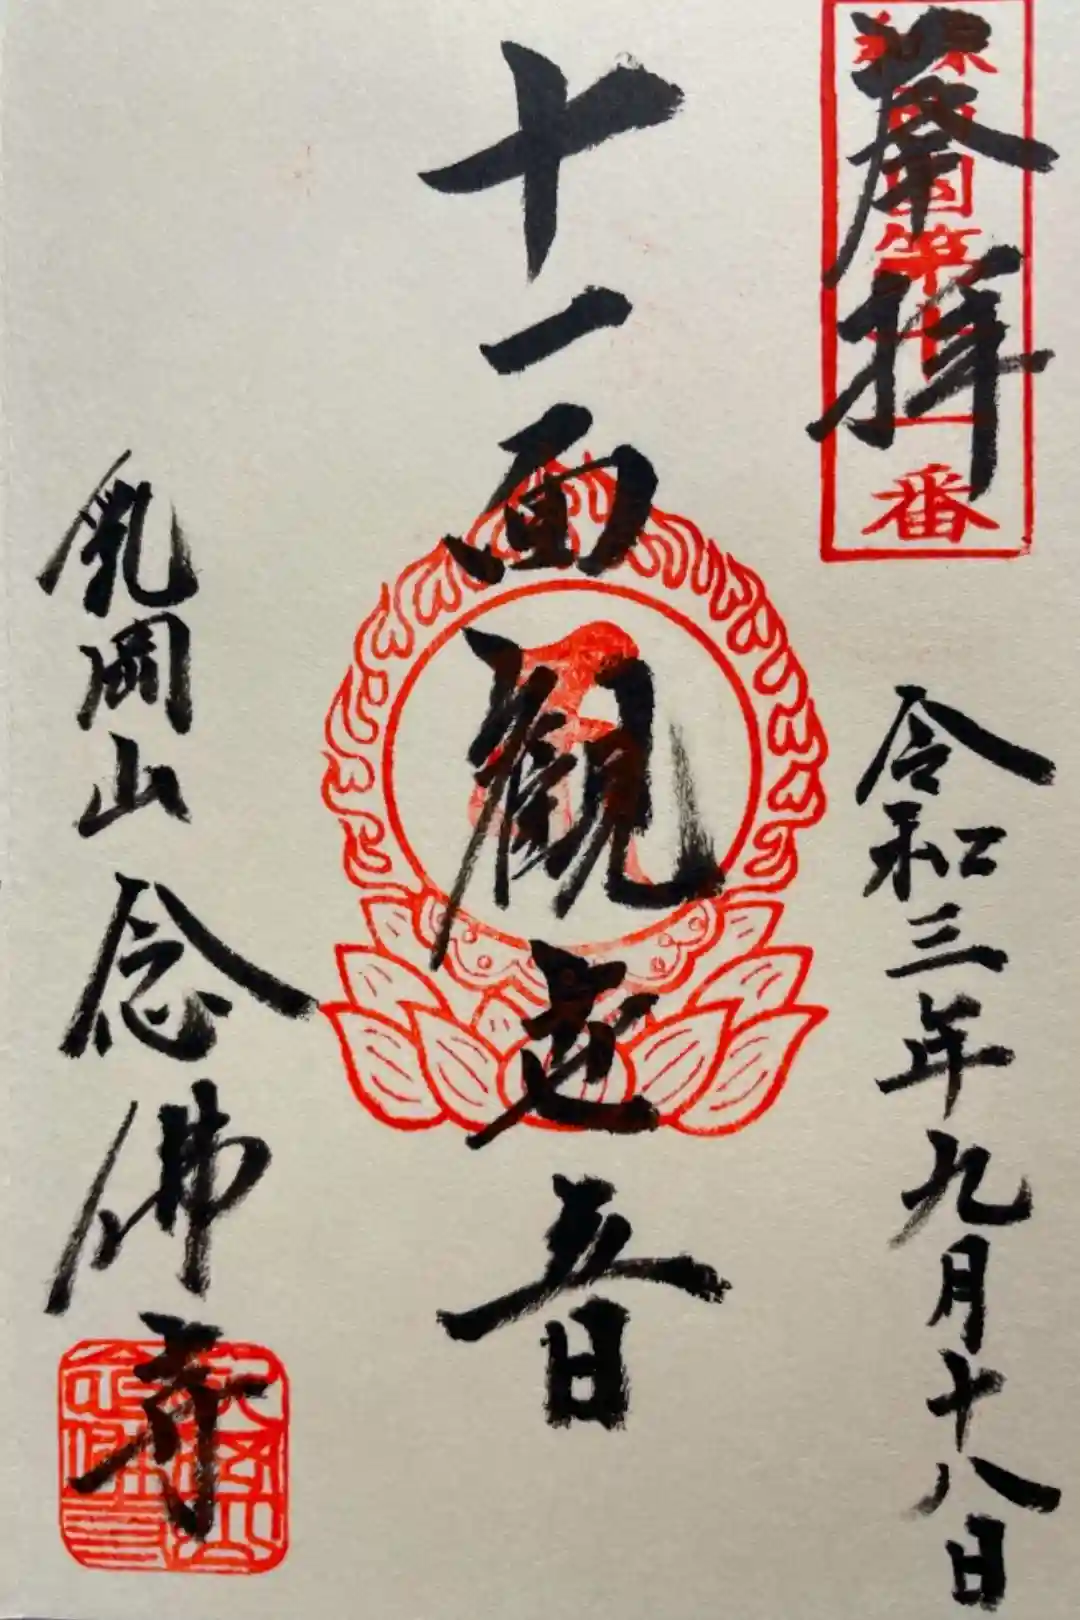 奉拝
第十一番
令和三年九月十八日
十一面観世音
乳岡山 念佛寺